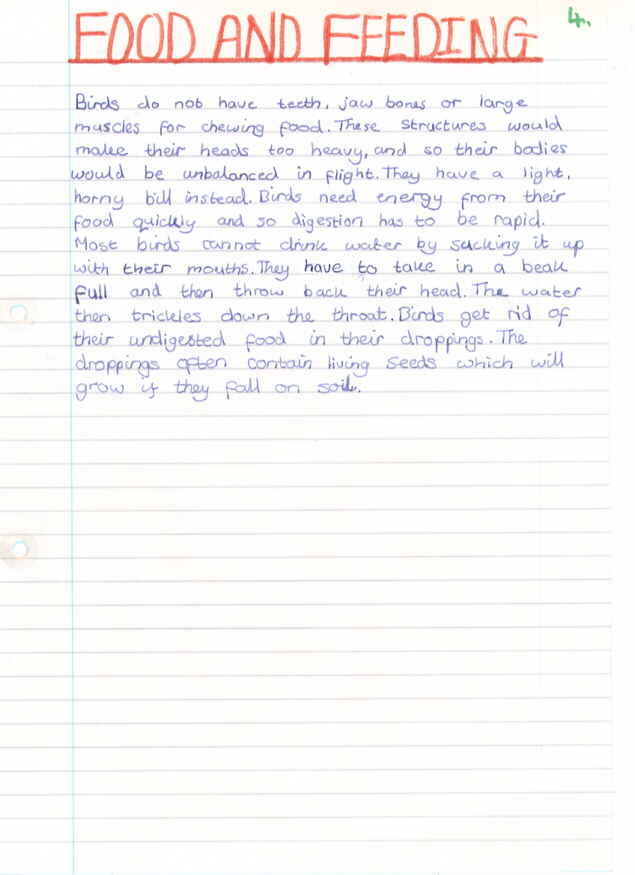 FOOD AND FEEDING
4.
Birds do not have teeth, jaw bones or large
muscles for chewing food. These structures would
make their heads too heavy, and so their bodies
would be unbalanced in flight. They have a light,
horny bill instead. Birds need energy from their
food quickly and so digestion has to be rapid.
Most birds cannot drink water by sucking it up
with their mouths. They have to take in a beak
full and then throw back their head. The water
then trickles down the throat. Birds get rid of
their undigested food in their droppings. The
droppings often contain living seeds which will
grow if they fall on soil.